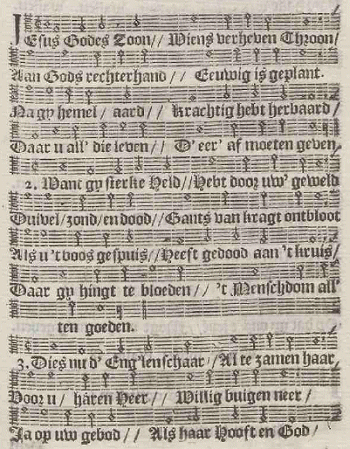 JEsus Godes Zoon// Wiens verheven Throon/
Aan Gods rechterhand // Eeuwig is geplant.
Na gy hemel / aard // krachtig hebt herbaard /
Daar u all' die leven // D' eer' af moeten geven.
2. Want gy sterke Held //Hebt door uw' geweld
Duivel/zond/en dood//Gants van kragt ontbloot
Als u 't boos gespuis//Heeft gedood aan 't kruis/
Daar gy hingt te bloeden // 't Menschdom all'
ten goeden.
3. Dies nu d' Eng'lenschaar /Al te zamen haar
Voor u / haren Heer // Willig buigen neer /
Ja op uw gebod // Als haar Hooft en God /